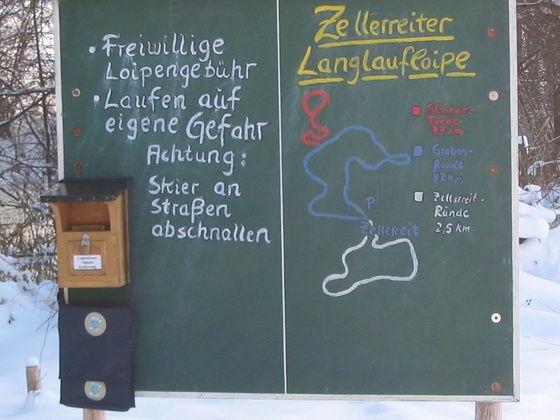 • Freiwillige
Loipengebühr
• Laufen auf
eigene Gefahr
Achtung:
Skier an
Straßen
abschnallen
Zellerreiter
Langlaufloipe
Runde
km
Graben-
Runde
km
Zellerreit-
Runde
2,5 km
P
Zellerreit